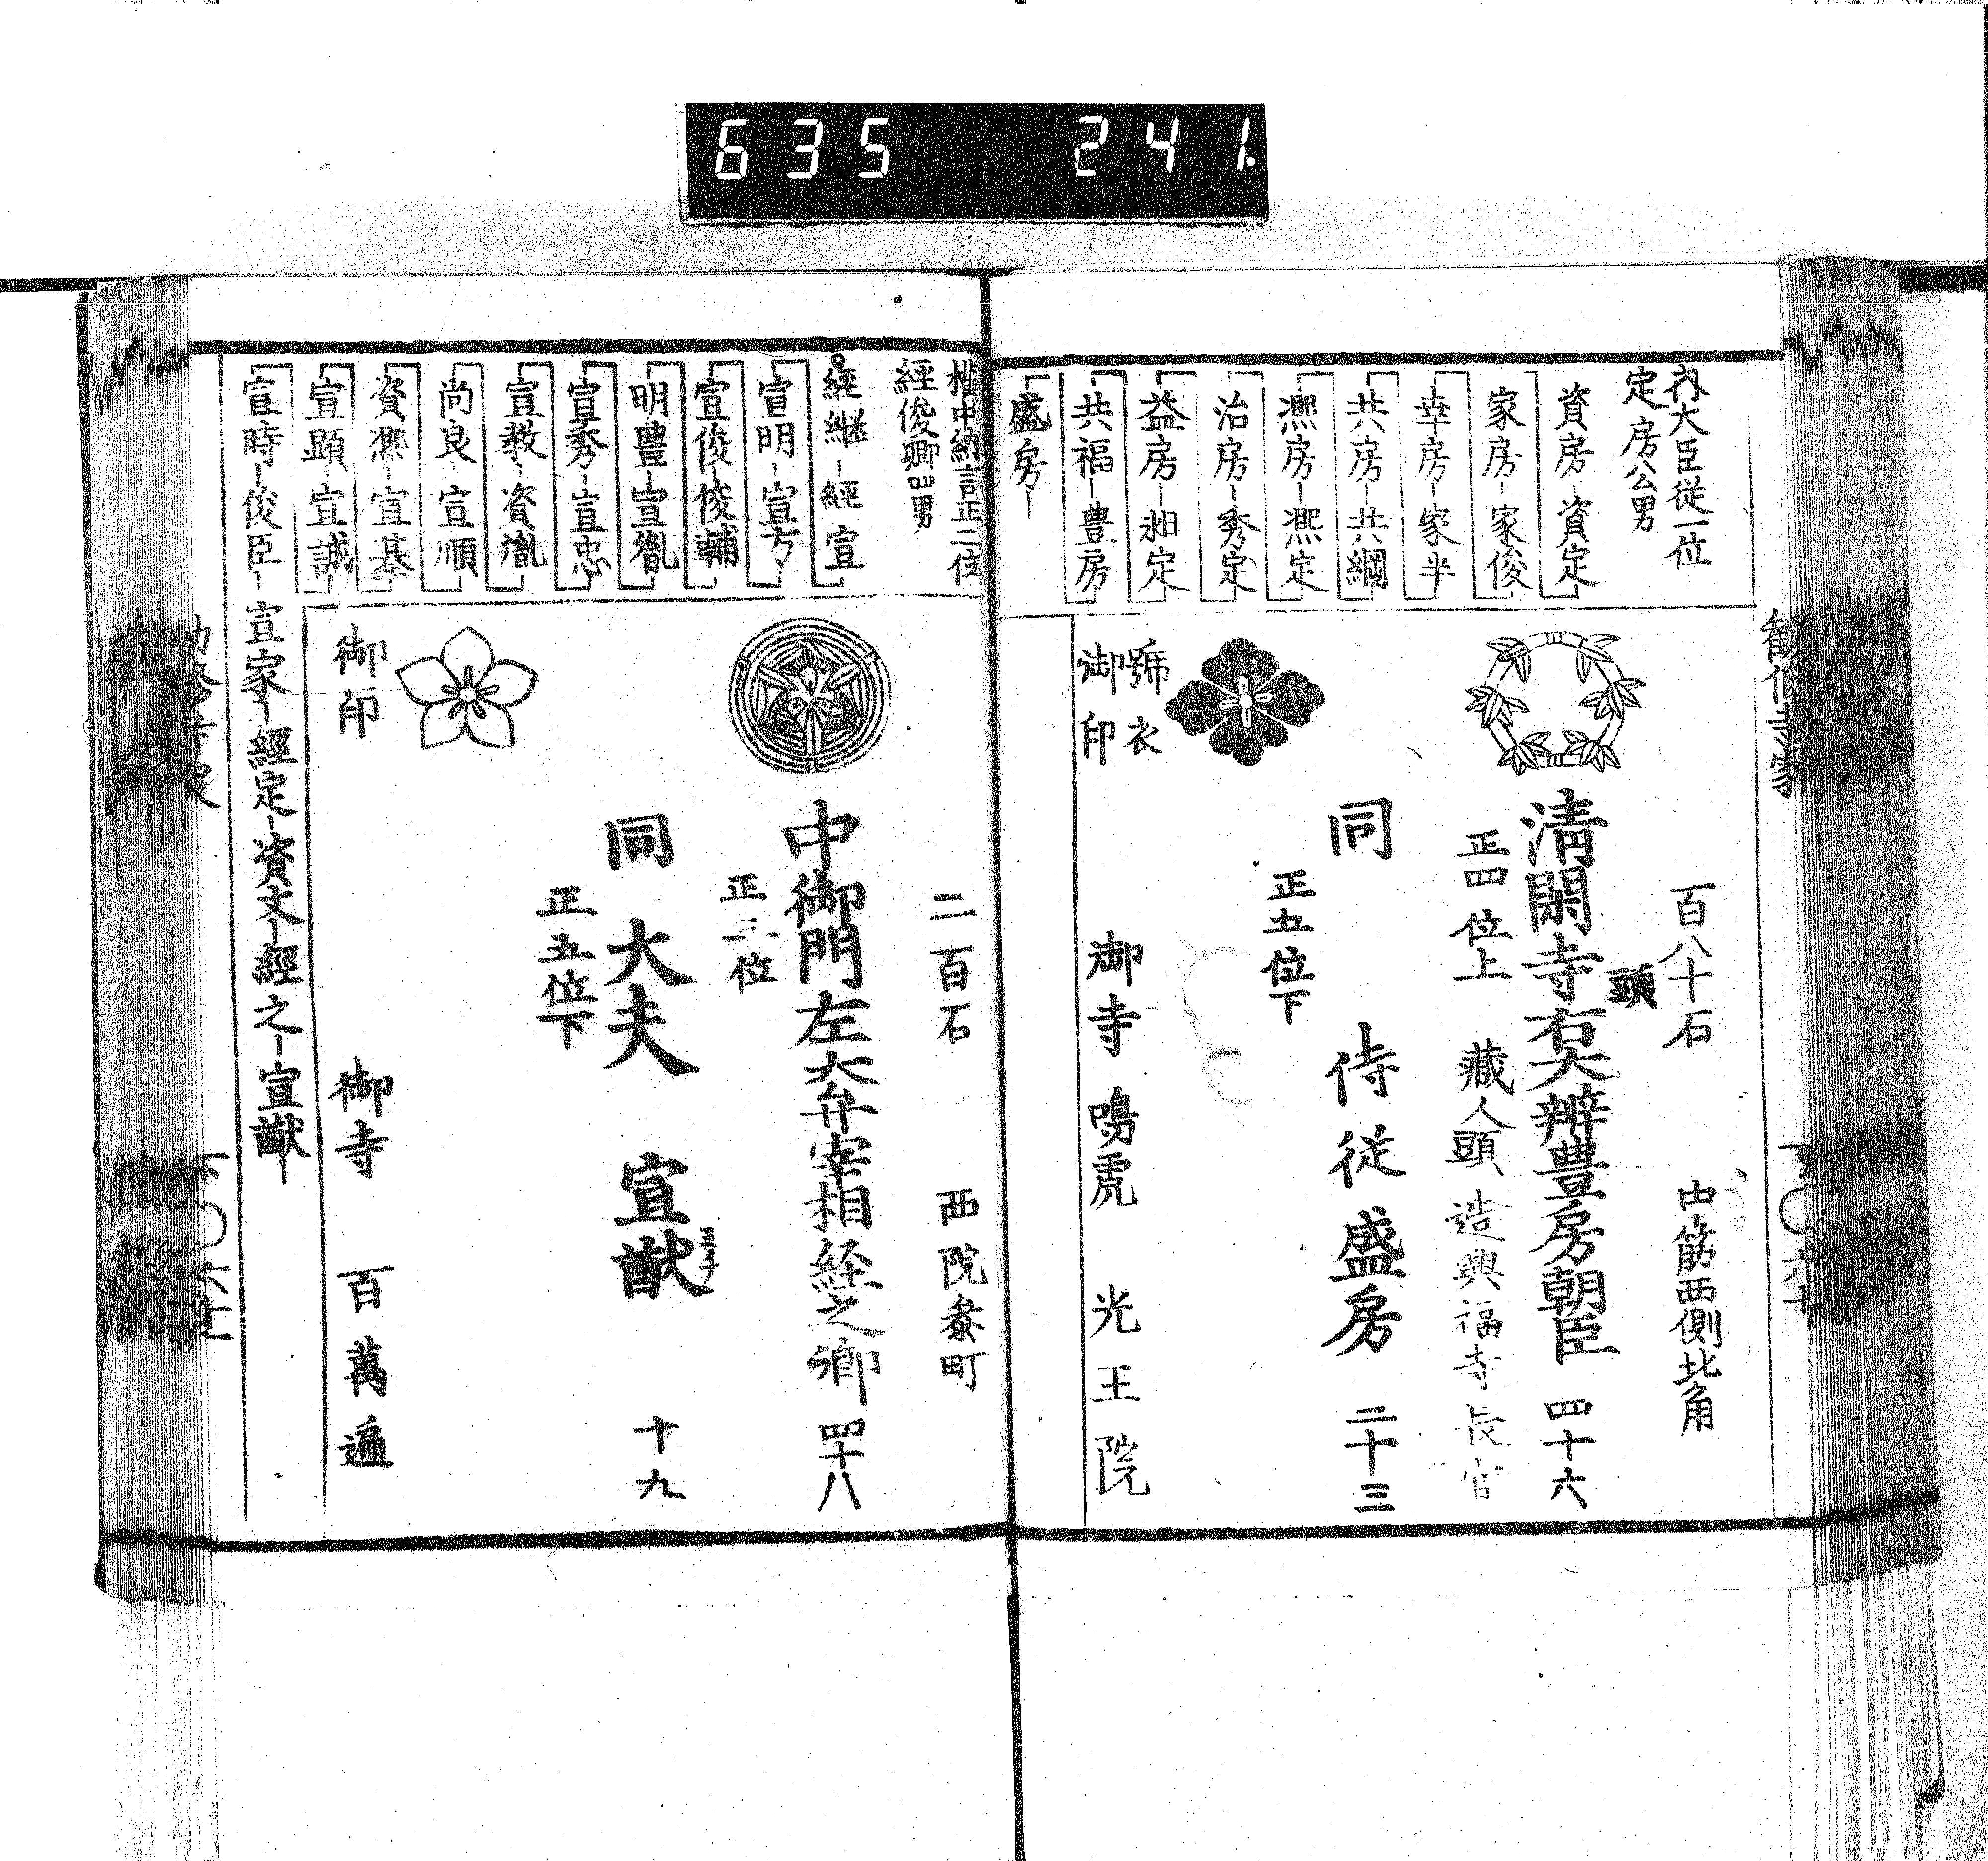 635 241.
内大臣従一位
定房公男
資房－資定
家房－家俊
幸房－家半
共房－共綱
凞房－凞定
治房－秀定
益房－昶定
共福－豊房
盛房－
百八十石 中筋西側北角
頭
清閑寺右大辨豊房朝臣 四十六
正四位上 蔵人頭 造興福寺長官
同 侍従 盛房 二十三
正五位下
號衣
御印 御寺 鳴虎 光王院
權中納言正二位
經俊卿四男
經継－經宣
宣明－宣方
宣俊－俊輔
明豊－宣胤
宣秀－宣忠
宣教－資胤
尚良－宣順
資凞－宣基
宣顕－宣誠
宣時－俊臣－宣家－經定－資文－經之－宣猷－
二百石 西院参町
中御門左大弁宰相経之卿 四十八
正三位
同 大夫 宣猷 十九
正五位下
御印 御寺 百萬遍